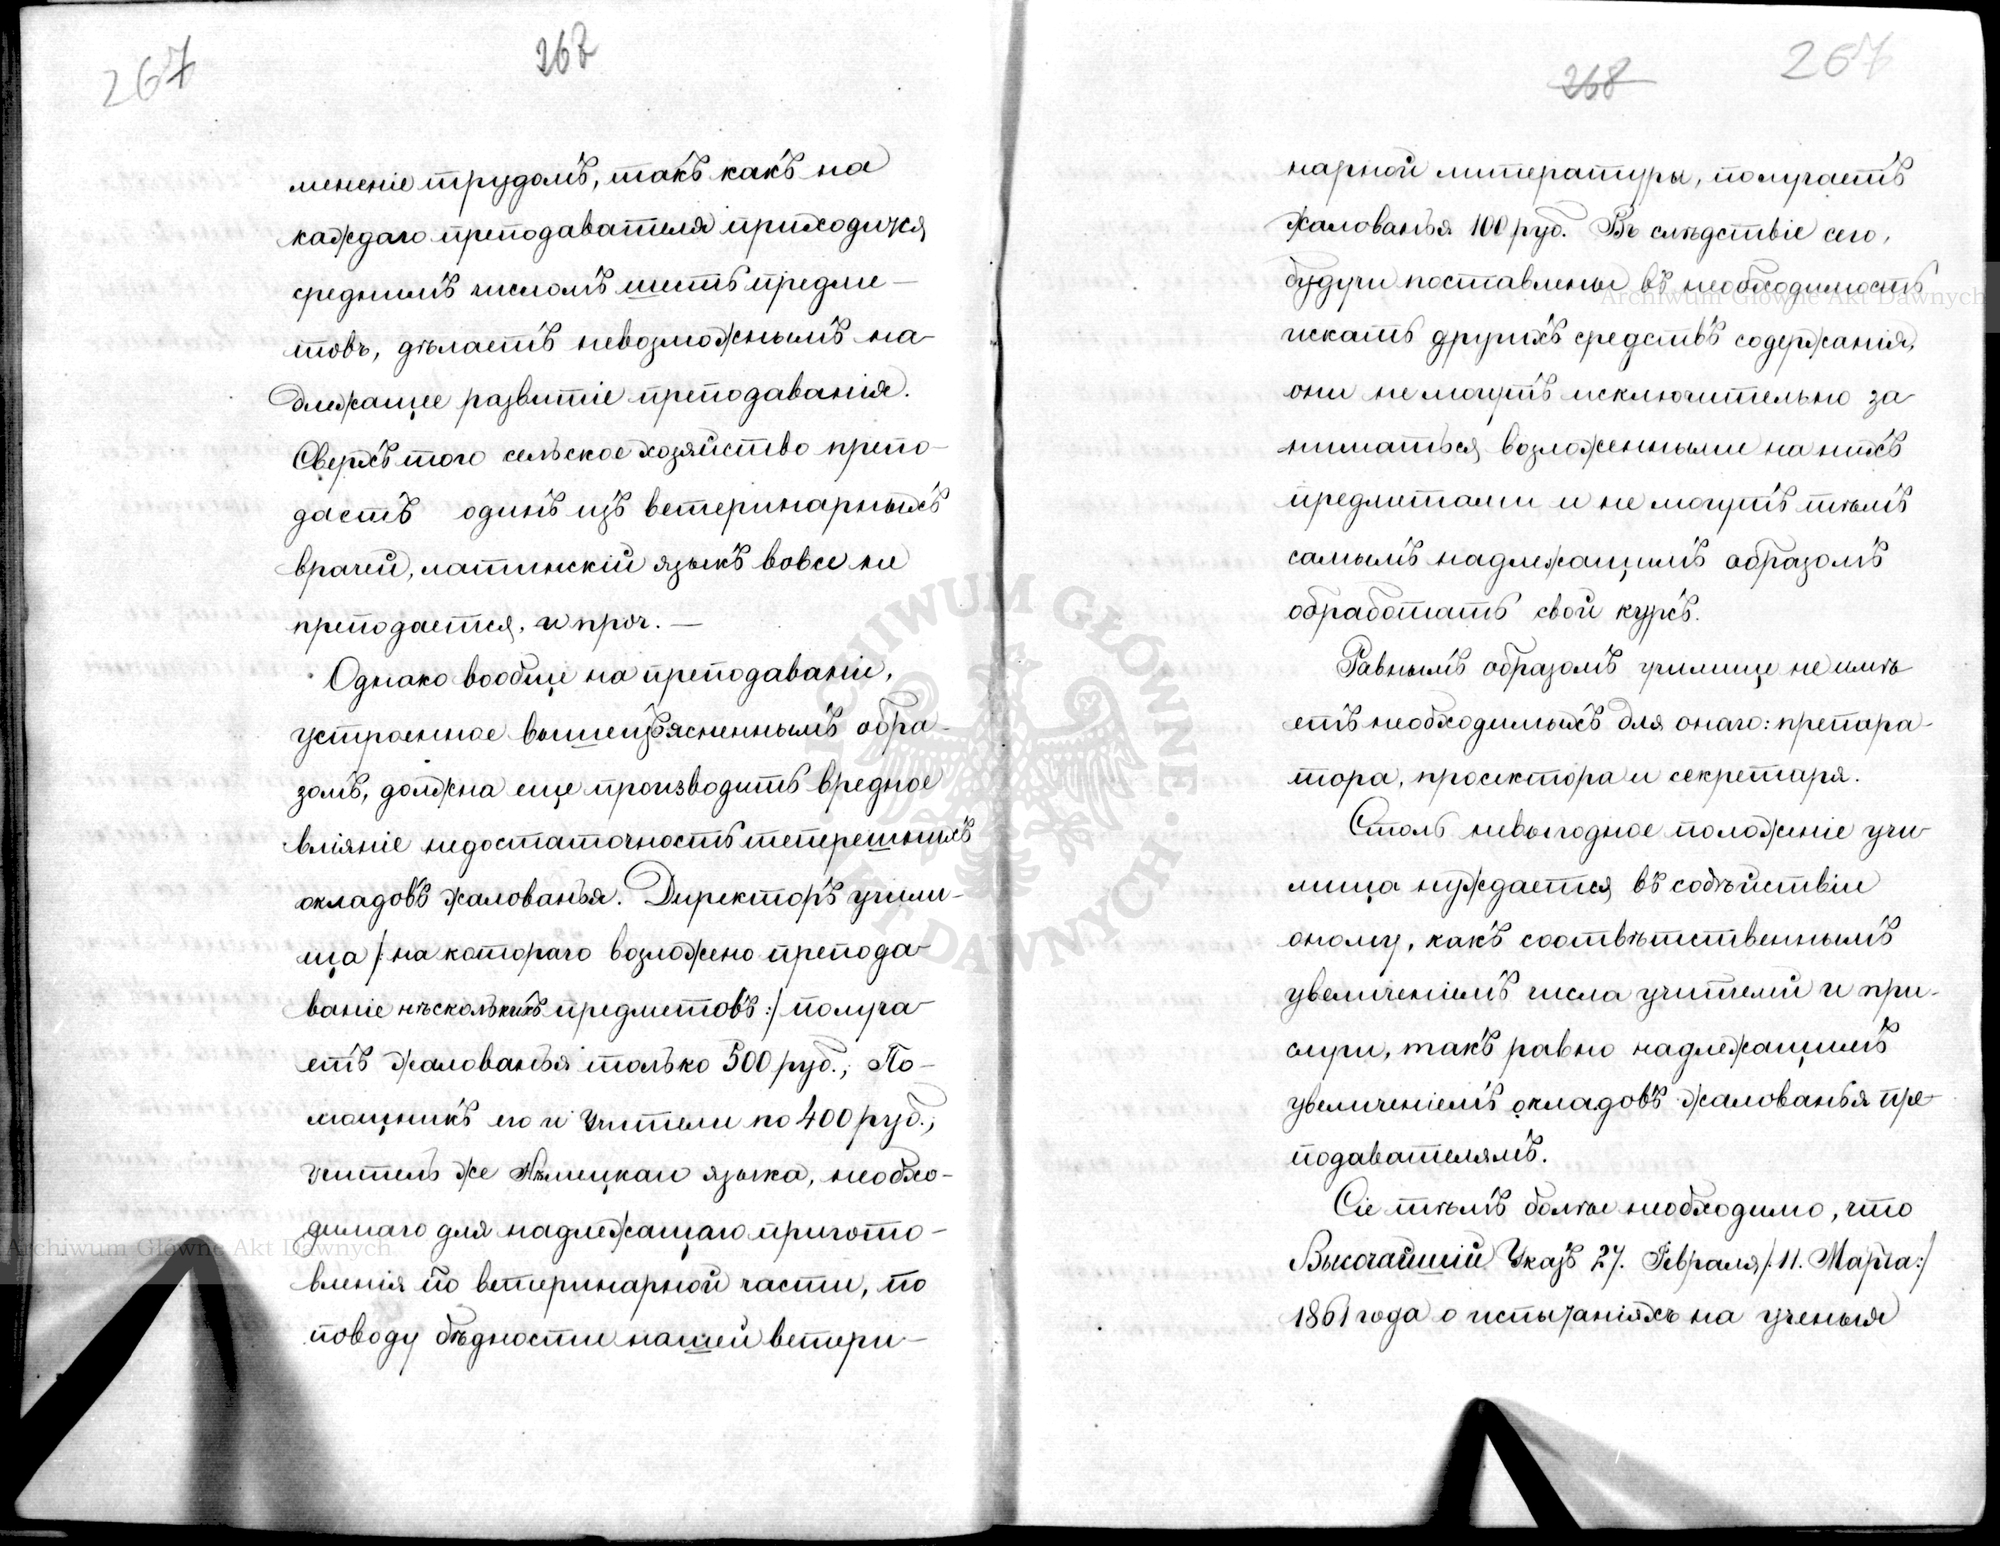 267
267
менение трудомъ, такъ какъ на
каждаго преподавателя приходится
среднимъ числомъ шесть предме-
товъ, дѣлаетъ невозможнымъ на-
длежащее развитіе преподаванія.
Сверхъ того сельское хозяйство препо-
даетъ одинъ изъ ветеринарныхъ
врачей, латинскій языкъ вовсе не
преподается, и проч. —
Однако вообще на преподаваніе,
устроенное вышеизъясненнымъ обра-
зомъ, должна еще производить вредное
вліяніе недостаточность теперешнихъ
окладовъ жалованья. Директоръ учили-
ща /:на котораго возложено препода-
ваніе нѣсколькихъ предметовъ:/ получа-
етъ жалованья только 500 руб.; По-
мощникъ его и Учители по 400 руб.;
учитель же Нѣмецкаго языка, необхо-
димаго для надлежащаго пригото-
вленія по ветеринарной части, по
поводу бѣдности нашей ветери-
268
267
нарной литературы, получаетъ
жалованья 100 руб. Въ слѣдствіе сего,
будучи поставлены въ необходимость
искать другихъ средствъ содержанія,
они не могутъ исключительно за-
ниматься возложенными на нихъ
предметами и не могутъ тѣмъ
самымъ надлежащимъ образомъ
обработать свой курсъ.
Равнымъ образомъ училище не имѣ-
етъ необходимыхъ для онаго: препара-
тора, просектора и секретаря.
Столь невыгодное положеніе учи-
лища нуждается въ содѣйствіи
оному, какъ соотвѣтственнымъ
увеличеніемъ числа учителей и при-
слуги, такъ равно надлежащимъ
увеличеніемъ окладовъ жалованья пре-
подавателямъ.
Сіе тѣмъ болѣе необходимо, что
Высочайшій Указъ 27. Февраля /:11. Марта:/
1861 года о испытаніяхъ на ученыя
Archiwum Główne Akt Dawnych
Archiwum Główne Akt Dawnych
ARCHIWUM GŁÓWNE · AKT DAWNYCH ·